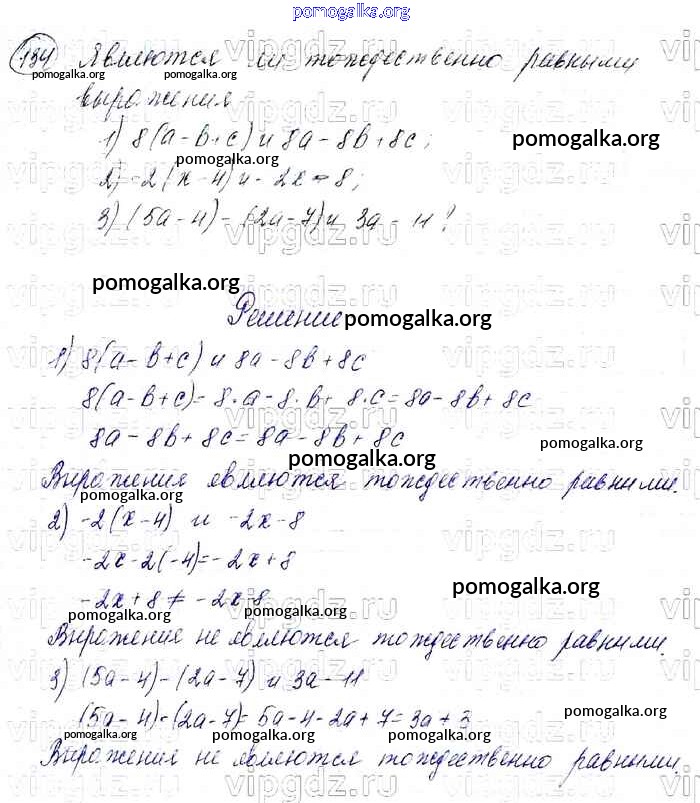 pomogalka.org
134 Являются ли тождественно равными
pomogalka.org
выражения
1) 8(a-b+c) и 8a-8b+8c;
pomogalka.org
pomogalka.org
2) -2(x-4) и -2x-8;
pomogalka.org
3) (5a-4)-(2a-7) и 3a-11?
pomogalka.org
pomogalka.org
Решение pomogalka.org
1) 8(a-b+c) и 8a-8b+8c
8(a-b+c)=8·a-8·b+8·c=8a-8b+8c
8a-8b+8c=8a-8b+8c
pomogalka.org
pomogalka.org
Выражения являются тождественно равными.
pomogalka.org
2) -2(x-4) и -2x-8
-2x-2(-4)=-2x+8
pomogalka.org
-2x+8≠-2x-8
pomogalka.org pomogalka.org
Выражение не являются тождественно равными.
3) (5a-4)-(2a-7) и 3a-11
(5a-4)-(2a-7)=5a-4-2a+7=3a+3
pomogalka.org
pomogalka.org pomogalka.org
Выражения не являются тождественно равными.
vipgdz.ru